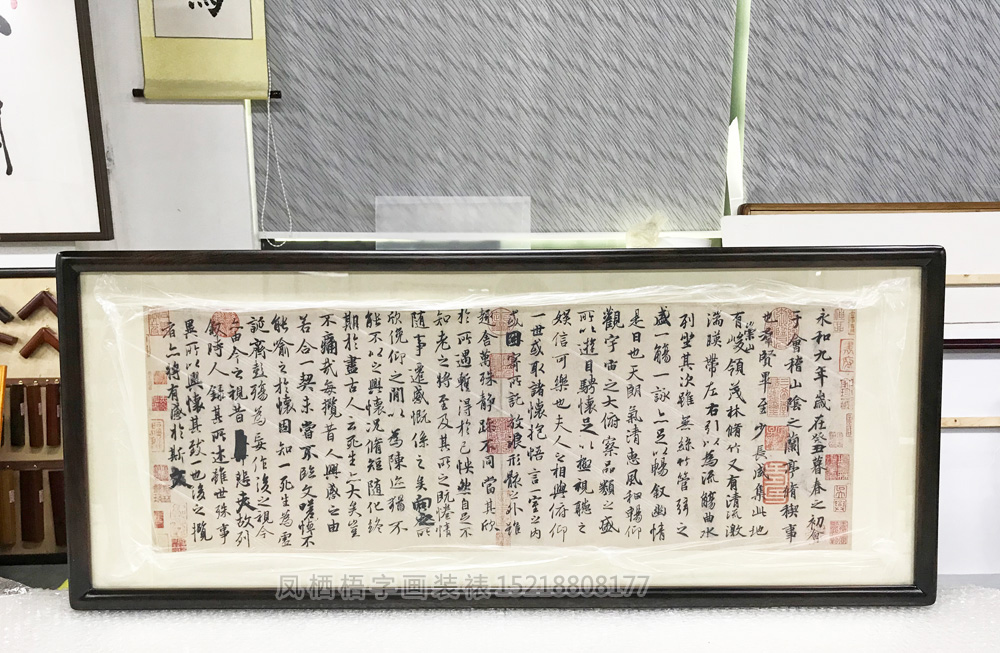 永和九年歲在癸丑暮春之初會
于會稽山陰之蘭亭脩稧事
也羣賢畢至少長咸集此地
有崇山峻領茂林脩竹又有清流激
湍暎帶左右引以為流觴曲水
列坐其次雖無絲竹管弦之
盛一觴一詠亦足以暢敘幽情
是日也天朗氣清惠風和暢仰
觀宇宙之大俯察品類之盛
所以遊目騁懷足以極視聽之
娛信可樂也夫人之相與俯仰
一世或取諸懷抱悟言一室之內
或因寄所託放浪形骸之外雖
趣舍萬殊靜躁不同當其欣
於所遇暫得於己怏然自足不
知老之將至及其所之既惓情
隨事遷感慨係之矣向之所
欣俛仰之閒以為陳迹猶不
能不以之興懷況脩短隨化終
期於盡古人云死生亦大矣豈
不痛哉每攬昔人興感之由
若合一契未嘗不臨文嗟悼不
能喻之於懷固知一死生為虛
誕齊彭殤為妄作後之視今
亦由今之視昔悲夫故列
敘時人錄其所述雖世殊事
異所以興懷其致一也後之攬
者亦將有感於斯文
凤栖梧字画装裱15218808177